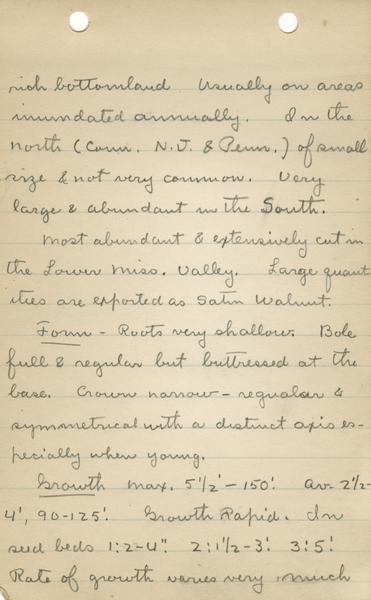 rich bottomland Usually on areas
inundated annually. In the
north (Conn. N.J. & Penn.) of small
size & not very common. Very
large & abundant in the South.
Most abundant & extensively cut in
the Lower Miss. Valley. Large quant
ities are exported as Satin Walnut.
Form - Roots very shallow. Bole
full & regular but buttressed at the
base. Crown narrow - regular &
symmetrical with a distinct axis es-
pecially when young.
Growth max. 5'1/2' - 150'. Av. 2'1/2-
4', 90-125'. Growth Rapid. In
seed beds 1:2-4". 2:1'1/2-3'. 3:5'.
Rate of growth varies very much